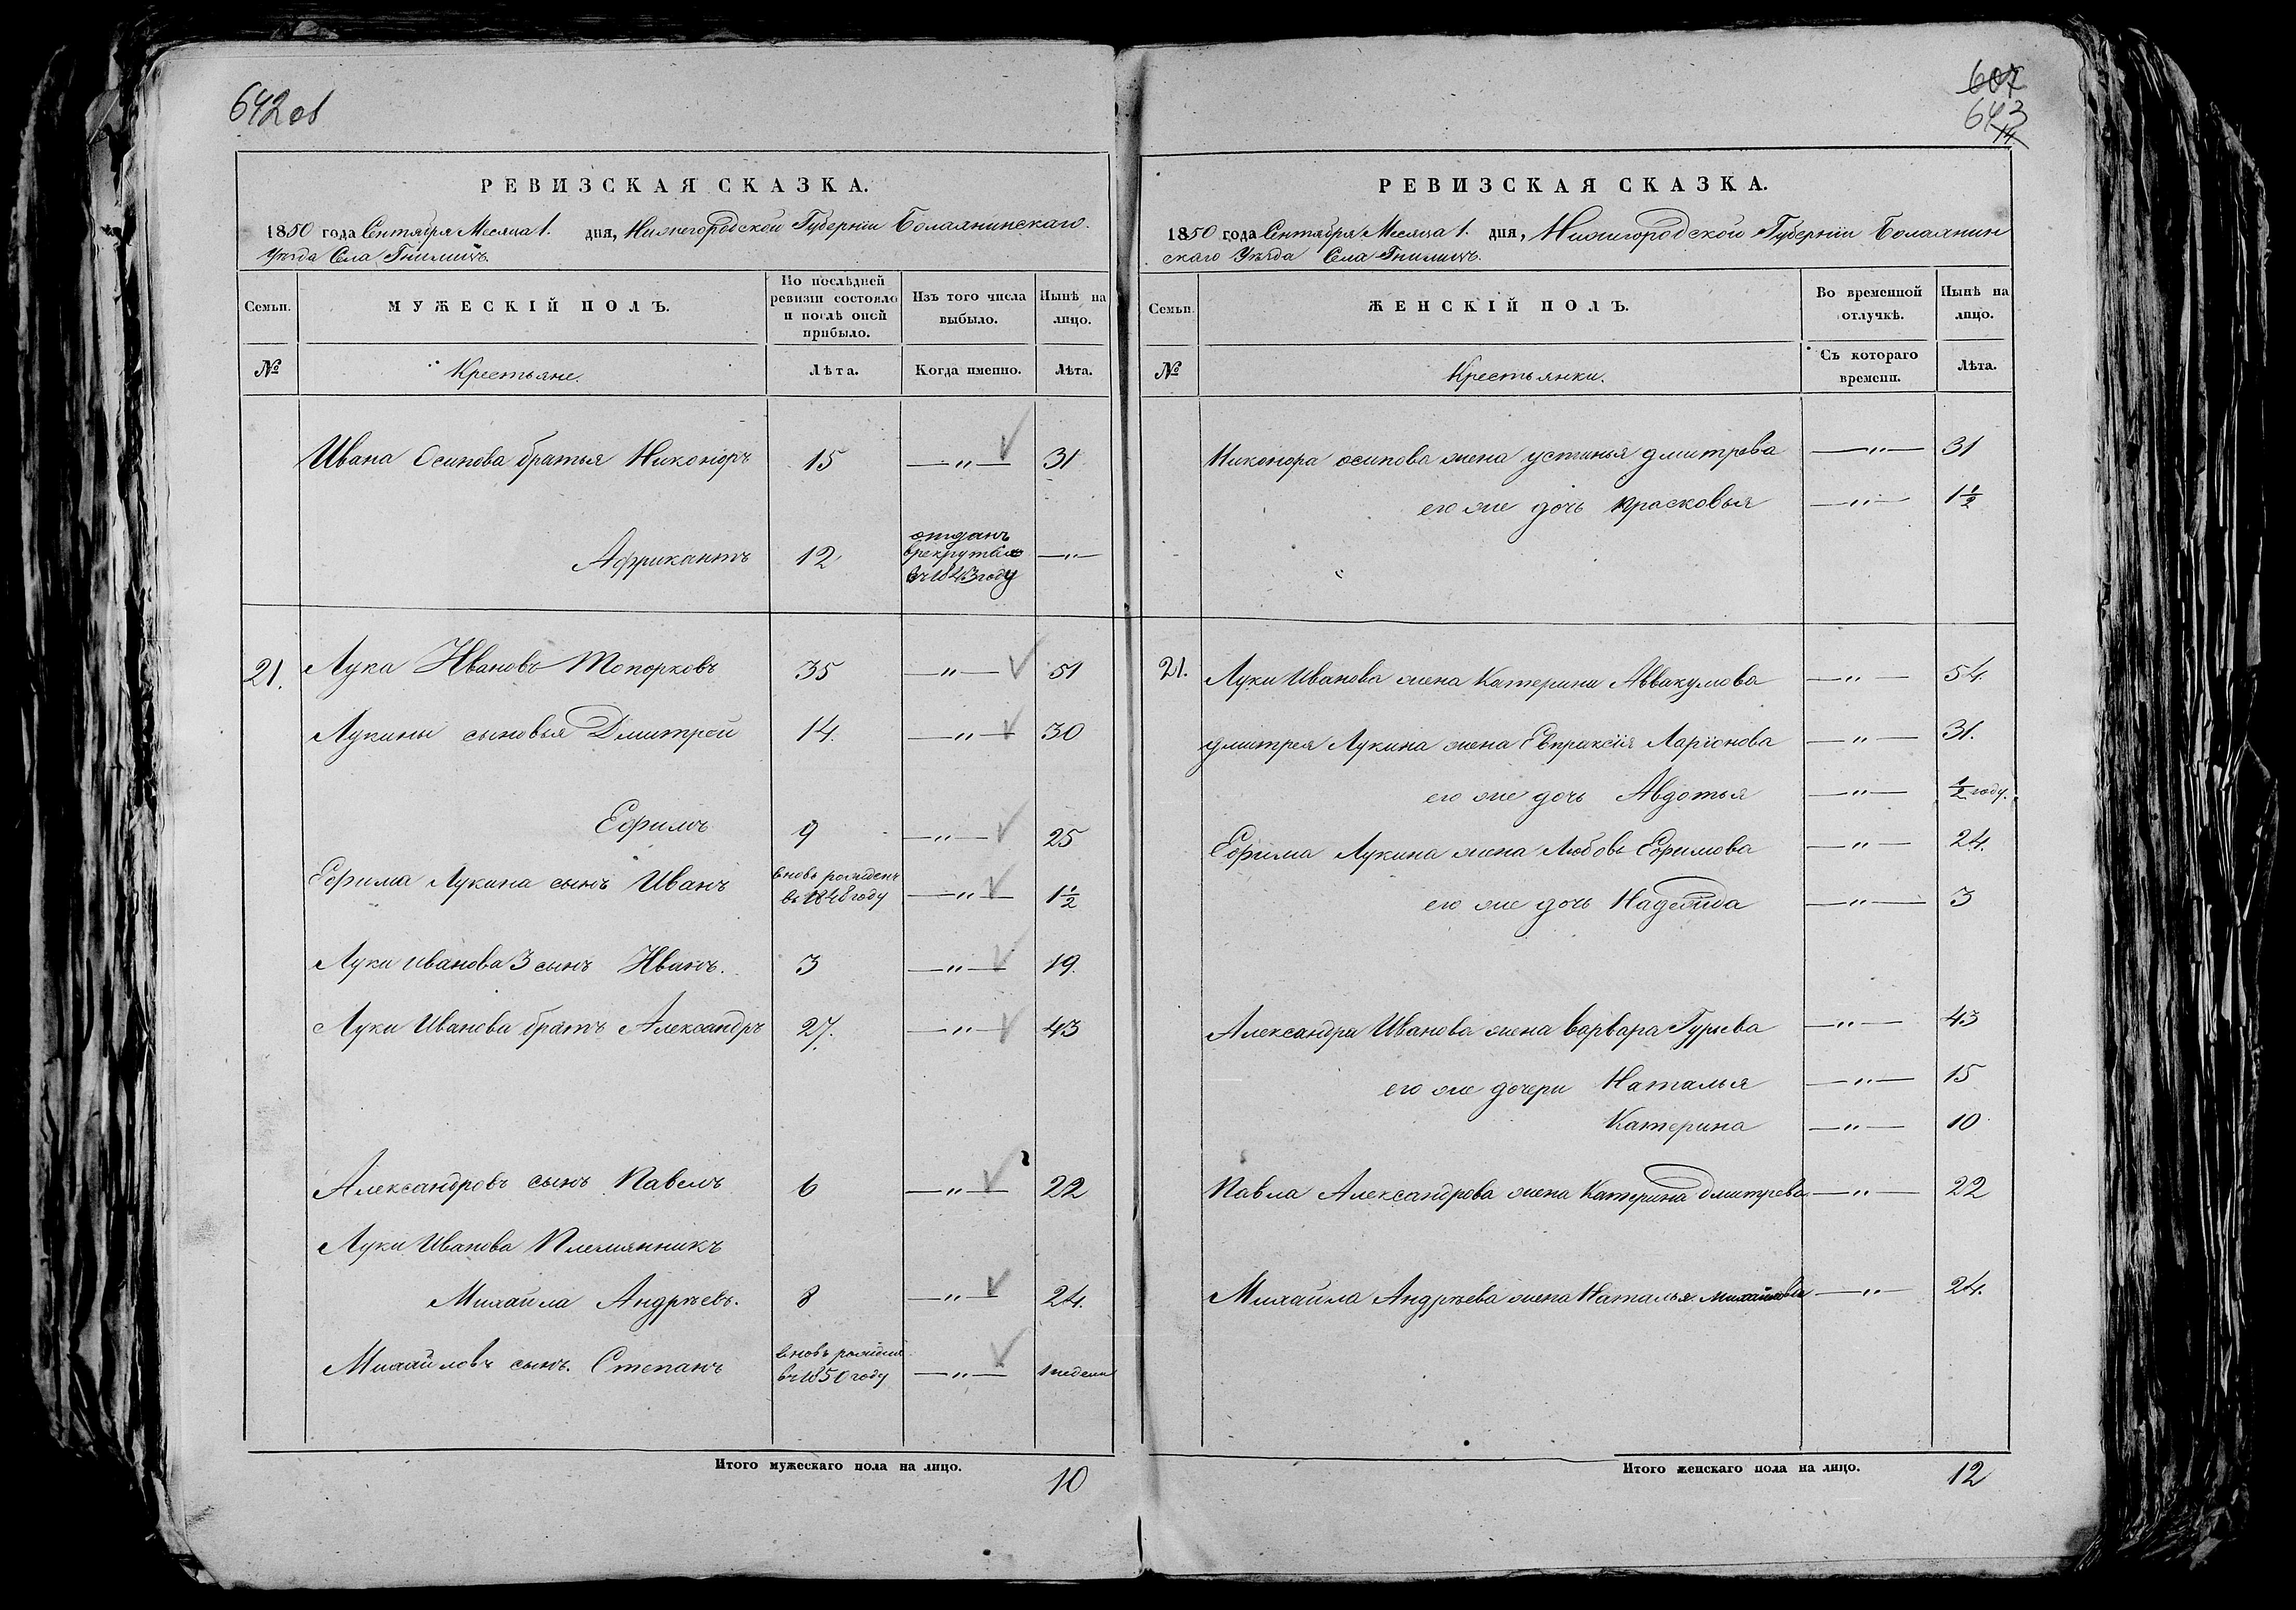 642 об
РЕВИЗСКАЯ СКАЗКА.
1850 года Сентября Месяца 1. дня, Нижегородской Губернiи Болаянинскаго
Уѣзда Села Гнилицъ.
Семьи.
МУЖЕСКІЙ ПОЛЪ.
По послѣдней ревизіи состояло и послѣ оной прибыло.
Изъ того числа выбыло.
Нынѣ на лицо.
№
Крестьяне.
Лѣта.
Когда именно.
Лѣта.
Ивана Осипова братья Никоноръ 15 —"— 31
Африкантъ 12 отданъ в рекруты въ 1843 году —"—
21. Лука Ивановъ Топорковъ 35 —"— 51
Лукины сыновья Дмитрей 14. —"— 30
Ефимъ 9 —"— 25
Ефима Лукина сынъ Иванъ вновь рожденъ въ 1848 году —"— 1½
Луки иванова 3 сынъ Иванъ. 3 —"— 19.
Луки Иванова братъ Александръ 27. —"— 43
Александровъ сынъ Павелъ 6 —"— 22
Луки Иванова Племянникъ
Михайла Андреевъ. 8 —"— 24.
Михайловъ сынъ. Степанъ вновь рожденъ въ 1850 году —"— 1 недели
Итого мужескаго пола на лицо. 10
607
643
14
РЕВИЗСКАЯ СКАЗКА.
1850 года Сентября Месяца 1. дня, Нижигородской Губернiи Болаянин
скаго Уѣзда Села Гнилицъ.
Семьи.
ЖЕНСКІЙ ПОЛЪ.
Во временной отлучкѣ.
Нынѣ на лицо.
№
Крестьянки.
Съ котораго времени.
Лѣта.
Никонора осипова жена устинья дмитрева —"— 31
его же дочь прасковья —"— 1½
21. Луки Иванова жена Катерина Аввакумова —"— 54.
дмитрея Лукина жена Евпраксiя Ларiонова —"— 31.
его же дочь Авдотья —"— ½ году.
Ефима Лукина жена Любовь Ефимова —"— 24.
его же дочь Надежда —"— 3
Александра Иванова жена варвара Гурьева —"— 43
его же дочери Наталья —"— 15
Катерина —"— 10
Павла Александрова жена Катерина дмитрева —"— 22
Михайла Андреева жена Наталья михайлова —"— 24.
Итого женскаго пола на лицо. 12